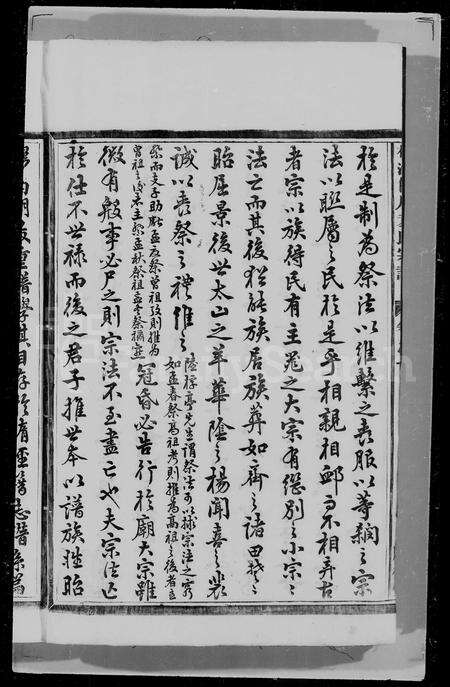 於是制為祭法以維繫之喪服以等綱之宗
法以聯屬之民於是乎相親相卹而不相弃古
者宗以族得民有主鬯之大宗有繼別之小宗宗
法亡而其後猶能族居族葬如齊之諸田楚之
昭屈景後世太山之羊華陰之楊聞喜之裴
誠以喪祭之禮維之
陸桴亭先生謂祭法可以補宗法之窮
如孟春祭高祖考則推為高祖之後者主
祭而支子助獻孟夏祭曾祖考則推為
曾祖之後者主祭孟秋祭祖孟冬祭禰
冠昏必告行於廟大宗雖
微有殺事必尸之則宗法不至盡亡也夫宗法亡
於仕不世祿而後之君子推世本以譜族姓昭